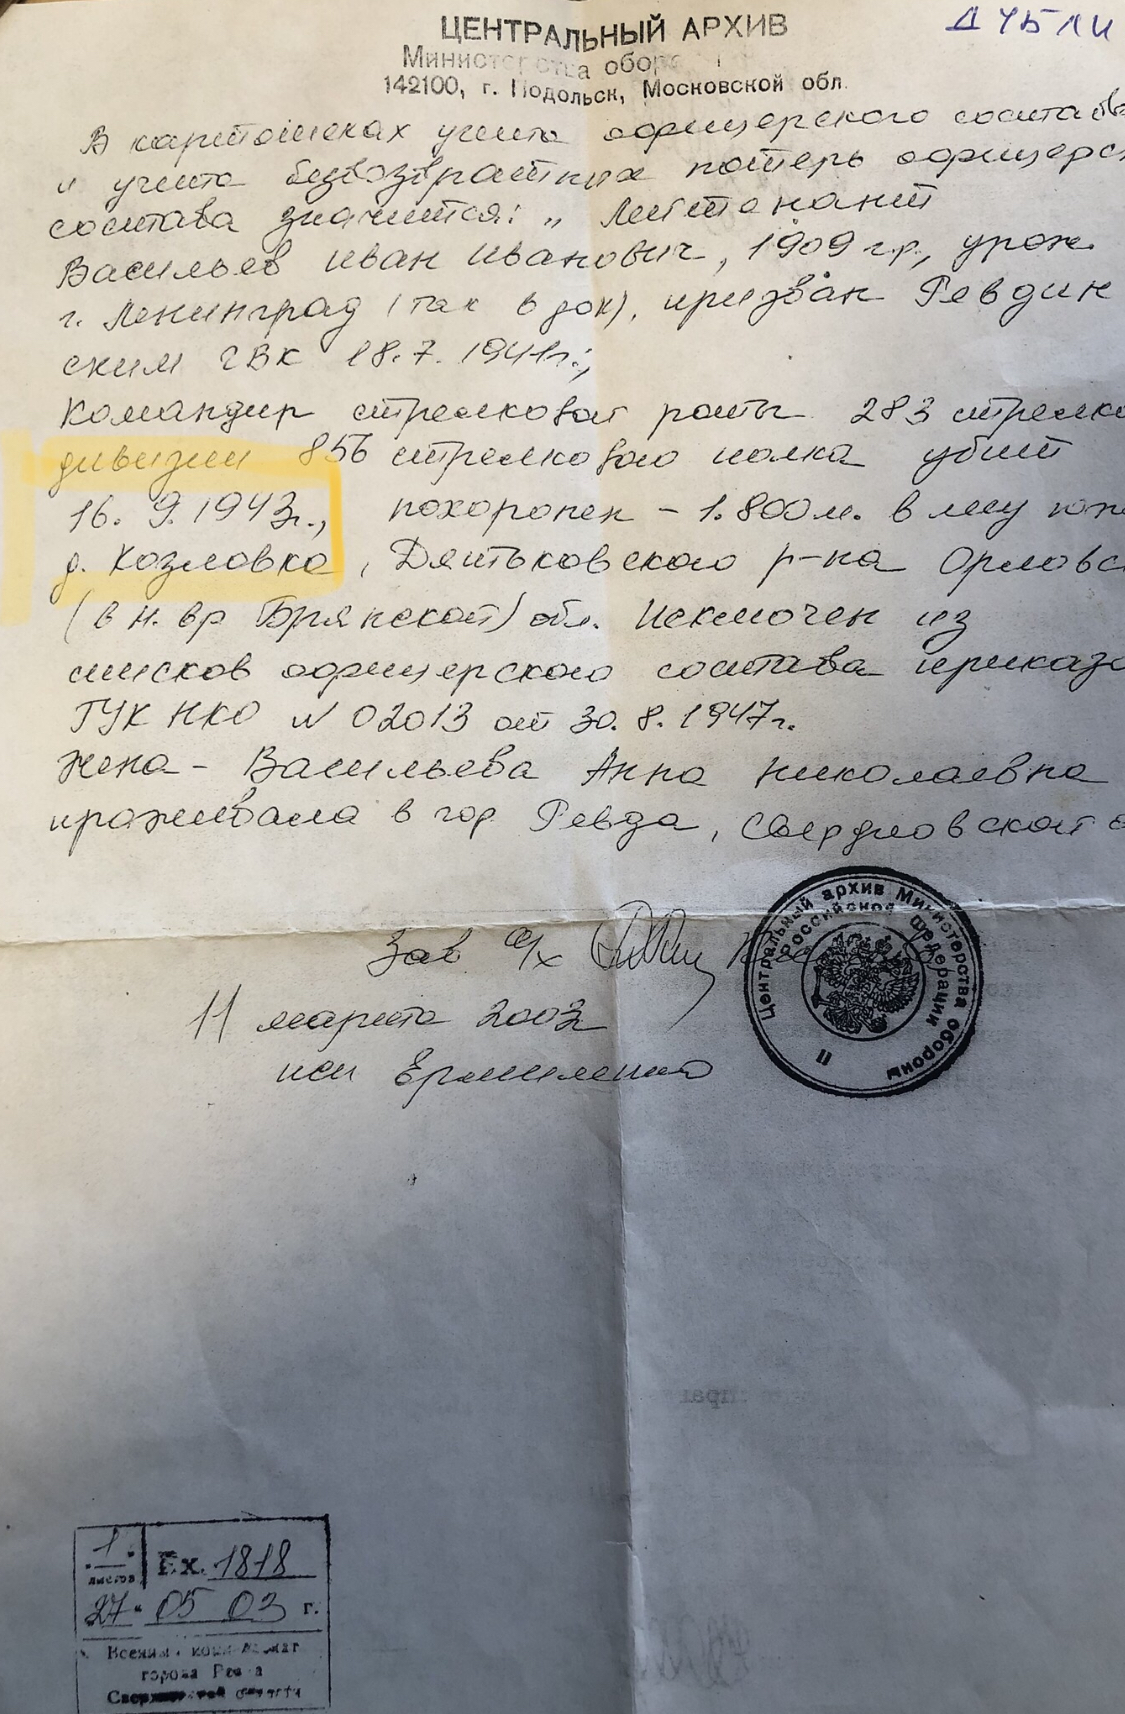 ЦЕНТРАЛЬНЫЙ АРХИВ
ДУБЛИ
Министерства оборо
142100, г. Подольск, Московской обл.
В картотеках учета офицерского состава
и учета безвозвратных потерь офицерс
состава значится: „ Лейтенант
Васильев Иван Иванович, 1909 г.р., урож.
г. Ленинград (так в док), призван Ревдин
ским ГВК 18.7.1941г.,
Командир стрелковой роты 283 стрелко
дивизии 856 стрелкового полка убит
16.9.1943г., похоронен - 1.800м. в лесу южн
д. Козловка, Дятьковского р-на Орловс
(в н.вр Брянской) обл. Исключен из
списков офицерского состава приказо
ГУК НКО № 02013 от 30.8.1947г.
Жена - Васильева Анна Николаевна
проживала в гор Ревда, Свердловской о
Зав а/х
11 марта 2003
исп
Центральный архив Министерства обороны
Российской Федерации
II
1
листов
Вх. 1818
27 " 05 03 г.
Военный комиссариат
города Ревда
Свердловской области